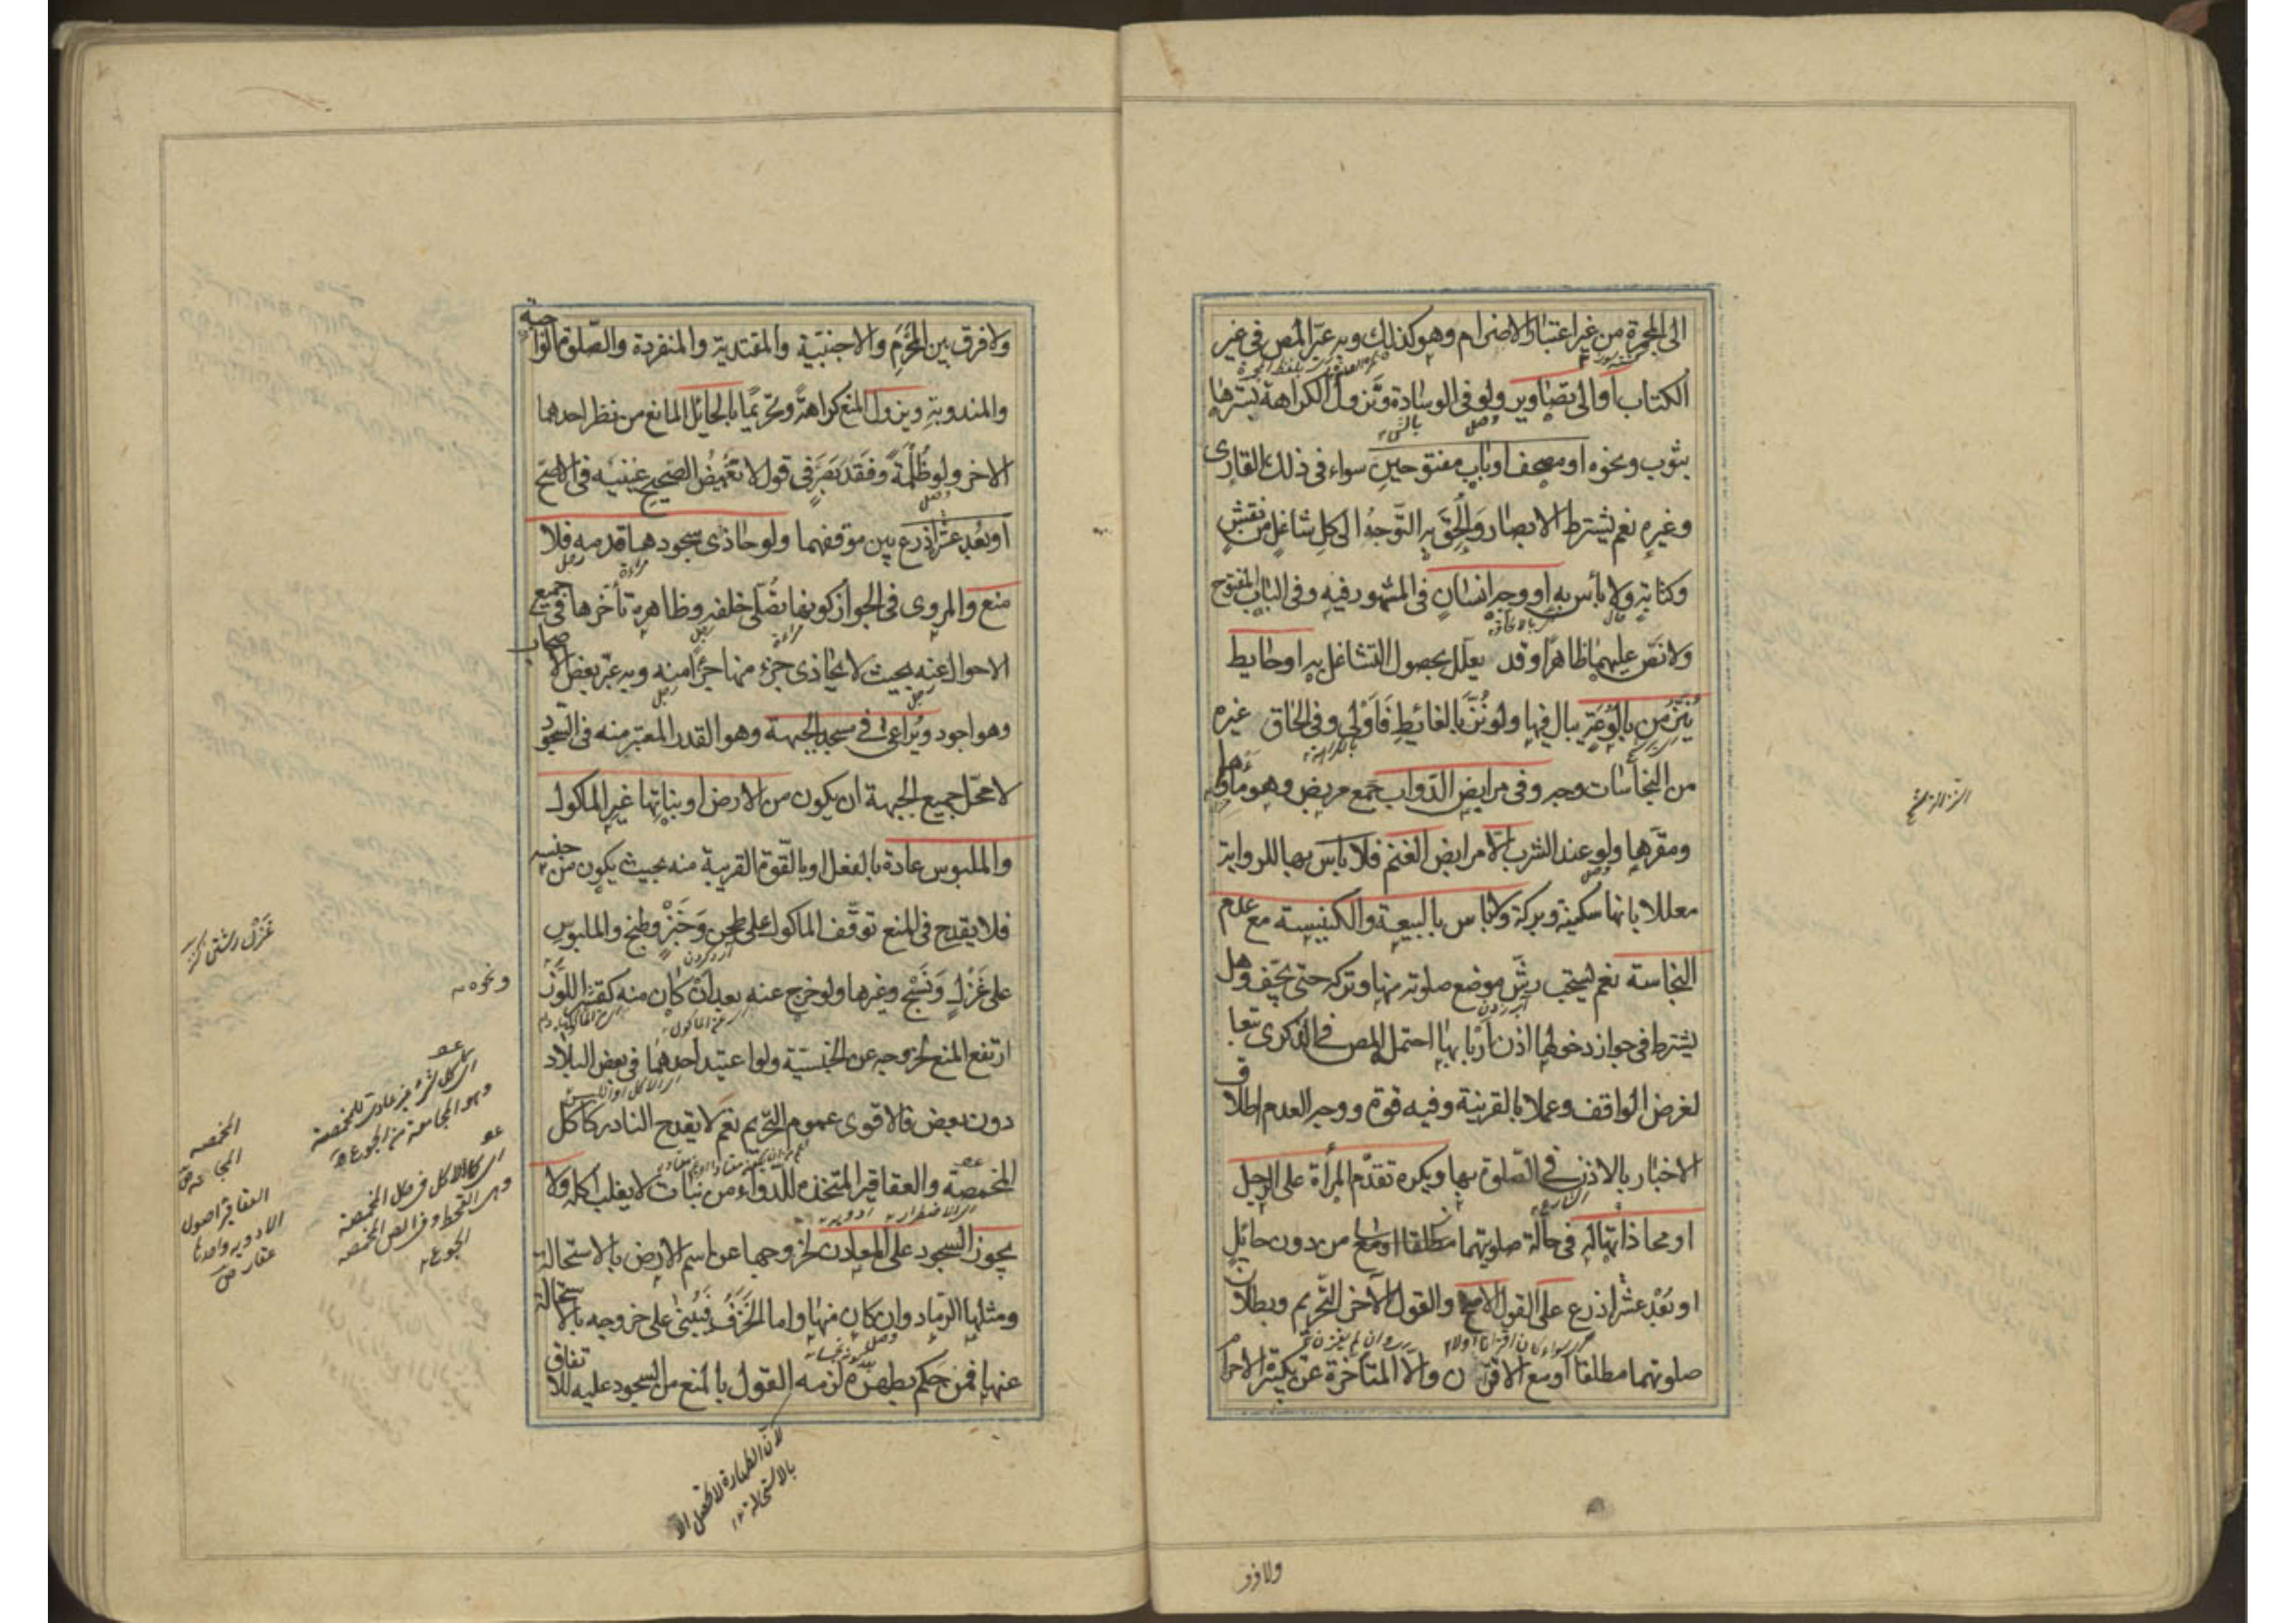 الى المجمرة من غير اعتبار الاضرام وهو كذلك وبه عبّر المص في غير
الكتاب او الى تصاوير ولو في الوسادة وتزول الكراهة بسترها
بثوب ونحوه او مصحف او باب مفتوحين سواء في ذلك القارى
وغيره نعم يشترط الابصار والحق به التوجه الى كل شاغل من نقش
وكتابة ولا بأس به او وجه انسان في المشهور فيه وفي الباب المفتوح
ولا نص عليهما ظاهرا وقد يعلل بحصول التشاغل به او حايط
ينزّ من بالوعة يبال فيها ولو نزّ بالغائط فاولى وفي الحاق غيره
من النجاسات وجه وفي مرابض الدواب جمع مربض وهو ماواها
ومقرها ولو عند الشرب الا مرابض الغنم فلا باس بها للرواية
معللا بانها سكينة وبركة ولا باس بالبيعة والكنيسة مع عدم
النجاسة نعم يستحب رش موضع صلوته منها وتركه حتى يجف وهل
يشترط في جواز دخولها اذن اربابها احتمله المص في الذكرى تبعا
لغرض الواقف وعملا بالقرينة وفيه قوة ووجه العدم اطلاق
الاخبار بالاذن في الصلوة بها ويكره تقدم المرأة على الرجل
او محاذاتها له في حالة صلوتهما من دون حائل
او بعد عشر اذرع على القول الاصح والقول الآخر التحريم وبطلان
صلوتهما مطلقا او مع الاقتران والا المتأخرة عن تكبيرة الاحرام
ولا فرق
ولا فرق بين المحرم والاجنبية والمقتدية والمنفردة والصلوة الواجبة
والمندوبة ويزول المنع كراهة وتحريما بالحائل المانع من نظر احدهما
الاخر ولو ظلمة وفقد بصر في قول لا تغميض الصحيح عينيه في الاصح
او بعد عشر اذرع بين موقفهما ولو حاذى سجودها قدمه فلا
منع والمروي في الجواز كونها تصلي خلفه وظاهره تأخرها في جميع
الاحوال عنه بحيث لا يحاذي جزء منها جزءا منه وبه عبر بعض الاصحاب
وهو اجود ويراعى في مسجد الجبهة وهو القدر المعتبر منه في السجود
لا محل جميع الجبهة ان يكون من الارض او نباتها غير الماكول
والملبوس عادة بالفعل او بالقوة القريبة منه بحيث يكون من جنسه
فلا يقدح في المنع توقف الماكول على طحن وخبز وطبخ والملبوس
على غزل ونسج وغيرها ولو خرج عنه بعد ان كان منه كقشر اللوز
ارتفع المنع لخروجه عن الجنسية ولو اعتيد احدهما في بعض البلاد
دون بعض فالاقوى عموم التحريم نعم لا يقدح النادر كاكل
المخمصة والعقاقير المتخذة للدواء من نبات لا يغلب اكله ولا
يجوز السجود على المعادن لخروجها عن اسم الارض بالاستحالة
ومثلها الرماد وان كان منها واما الخزف فيبنى على خروجه بالاستحالة
عنها فمن حكم بطهره لزمه القول بالمنع من السجود عليه للاتفاق
ونحوه
المخمصة
المجاعة
العقاقير اصول
الادوية واحدها
عقار
لان الطهارة لا تحصل الا
بالاستحالة